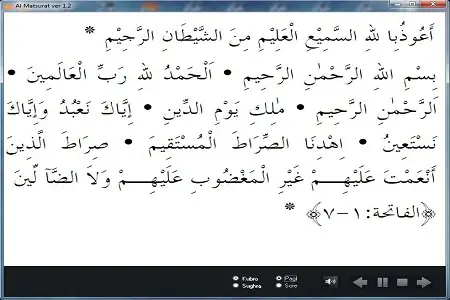 Al Matsurat ver 1.2
أَعُوْذُبِا للهِ السَّمِيْعِ الْعَلِيْمِ مِنَ الشَّيْطَانِ الرَّجِيْمِ *
بِسْمِ اللهِ الرَّحْمٰنِ الرَّحِيمِ • اَلْحَمْدُ للهِ رَبِّ الْعَالَمِينَ •
اَلرَّحْمٰنِ الرَّحِيمِ • مٰلِكِ يَوْمِ الدِّينِ • إِيَّاكَ نَعْبُدُ وَإِيَّاكَ
نَسْتَعِينُ • اِهْدِنَا الصِّرَاطَ الْمُسْتَقِيمَ • صِرَاطَ الَّذِينَ
أَنْعَمْتَ عَلَيْهِـــمْ غَيْرِ الْمَغْضُوبِ عَلَيْهِـــمْ وَلَا الضَّآ لِّينَ
﴿الفاتحة: ١-٧﴾ *
Kubro Pagi
Sughra Sore